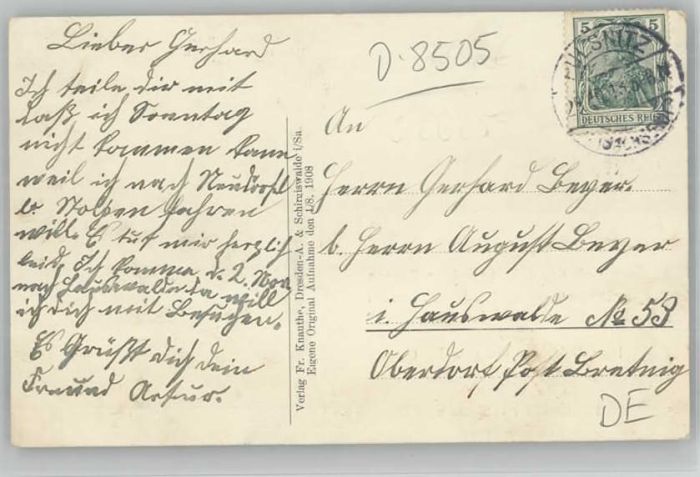 Lieber Gerhard
Ich teile dir mit
daß ich Sonntag
nicht kommen kann
weil ich nach Neudorf
b. Stolpen fahren
will. Es tut mir herzlich
leid. Ich komme d. 2. Mon
nach Hauswalde da will
ich dich mit besuchen.
Es Grüßt dich dein
Freund Artur.
Verlag Fr. Knauthe, Dresden-A. & Schirgiswalde i/Sa.
Eigene Original Aufnahme den 1./8. 1908
D-8505
5 5
DEUTSCHES REICH
PULSNITZ
An
Herrn Gerhard Beyer.
b. Herrn August Beyer
i. Hauswalde No 53
Oberdorf Post Bretnig
DE